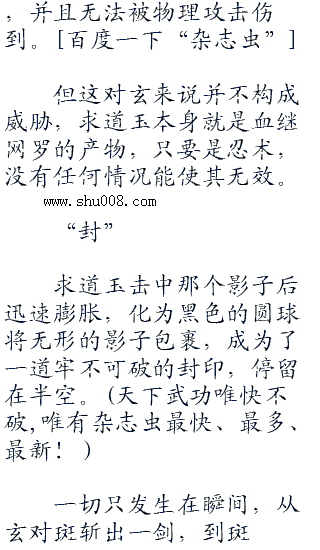 ，并且无法被物理攻击伤
到。[百度一下“杂志虫”]
但这对玄来说并不构成
威胁，求道玉本身就是血继
网罗的产物，只要是忍术，
没有任何情况能使其无效。
www.shu008.com
“封”
求道玉击中那个影子后
迅速膨胀，化为黑色的圆球
将无形的影子包裹，成为了
一道牢不可破的封印，停留
在半空。(天下武功唯快不
破,唯有杂志虫最快、最多、
最新！)
一切只发生在瞬间，从
玄对斑斩出一剑，到斑